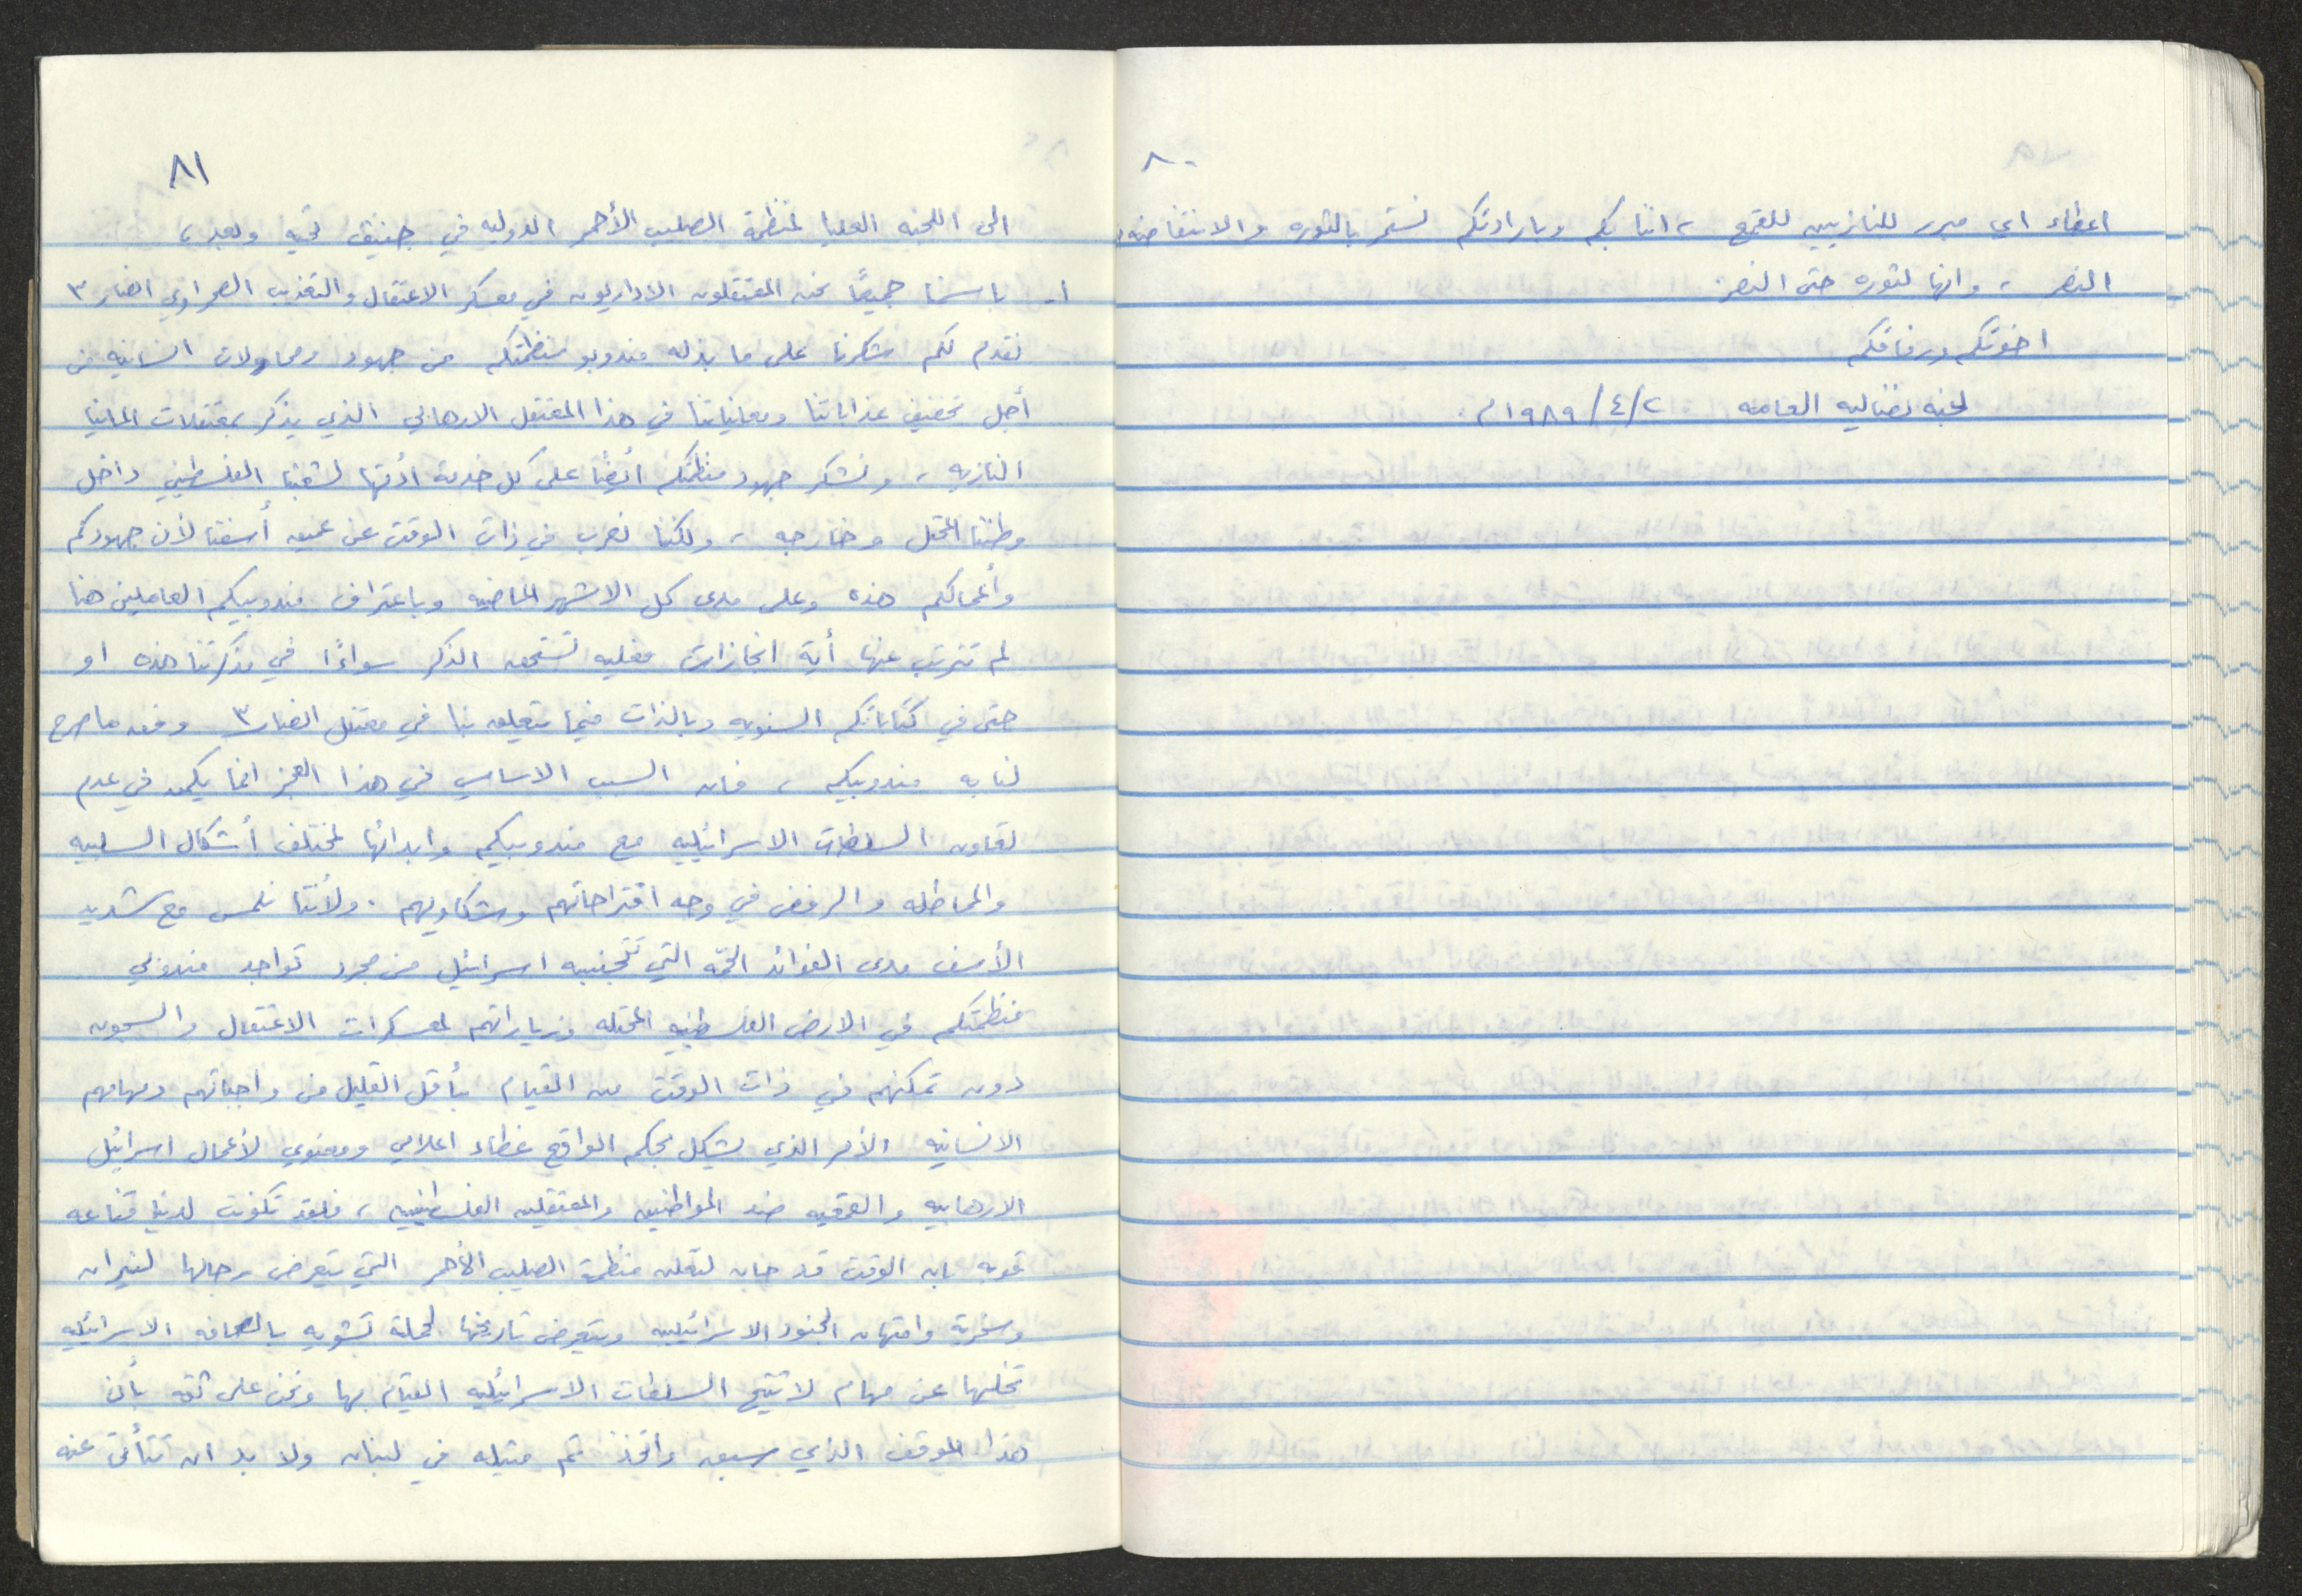 ٨٠
اعطاء اي مبرر للنازيين للقمع ، اننا بكم وبارادتكم نستمر بالثوره والانتفاضه
النصر ، وانها لثوره حتى النصر
اخوتكم ورفاقكم
لجنه نضاليه العامه ٢/٤/١٩٨٩م.
٨١
الى اللجنه العليا لمنظمة الصليب الأحمر الدوليه في جنيف تحيه وبعد ،
١- باسمنا جميعًا نحن المعتقلون الاداريون في معسكر الاعتقال والتعذيب الصحراوي انصار ٣
نقدم لكم شكرنا على ما بذله مندوبو منظمتكم من جهود ومحاولات انسانيه من
أجل تخفيف عذاباتنا ومعاناتنا في هذا المعتقل الارهابي الذي يذكر بمعتقلات المانيا
النازيه ، ونشكر جهود منظمتكم أيضًا على كل خدمة ادتها لشعبنا الفلسطيني داخل
وطننا المحتل وخارجه ، ولكننا نعرب في ذات الوقت عن عميق أسفنا لأن جهودكم
وأعمالكم هذه وعلى مدى كل الاشهر الماضيه وباعتراف مندوبيكم العاملين هنا
لم تترتب عنها أية انجازات فعليه تستحق الذكر سواءًا في مذكرتنا هذه او
حتى في كتاباتكم السنويه وبالذات فيما يتعلق بنا في معتقل انصار ٣ وفق ما صرح
لنا به مندوبيكم ، فان السبب الاساسي في هذا العجز انما يكمن في عدم
تعاون السلطات الاسرائيليه مع مندوبيكم وابدائها لمختلف أشكال السلبيه
والمماطله والرفض في وجه اقتراحاتهم وشكاويهم . ولأننا نلمس مع شديد
الأسف مدى الفوائد الجمّه التي تجنيه اسرائيل من مجرد تواجد مندوبي
منظمتكم في الارض الفلسطينيه المحتله وزياراتهم لمعسكرات الاعتقال والسجون
دون تمكنهم في ذات الوقت من القيام بأقل القليل من واجباتهم ومهامهم
الانسانيه الأمر الذي يشكل بحكم الواقع غطاء اعلامي ومعنوي لأعمال اسرائيل
الارهابيه والقمعيه ضد المواطنين والمعتقلين الفلسطينيين ، فلقد تكونت لدينا قناعه
قويه بان الوقت قد حان لتعلن منظمة الصليب الأحمر التي يتعرض رجالها لنيران
وسخرية وامتهان الجنود الاسرائيليه ويتعرض تاريخها لحملة تشويه بالصحافه الاسرائيليه
تخليها عن مهام لا تتيح السلطات الاسرائيليه القيام بها ونحن على ثقه بأن
هذا الموقف الذي سبق واتخذ تم مثيله في لبنان ولا بد ان تتأتى عنه